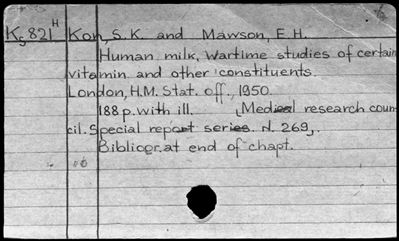 K5821H Kon, S. K. and Mawson, E. H.
Human milk, Wartime studies of certain
vitamin and other constituents.
London, H.M. Stat. off., 1950.
188 p. with ill. (Medical research coun-
cil. Special report series. N. 269).
Bibliogr. at end of chapt.